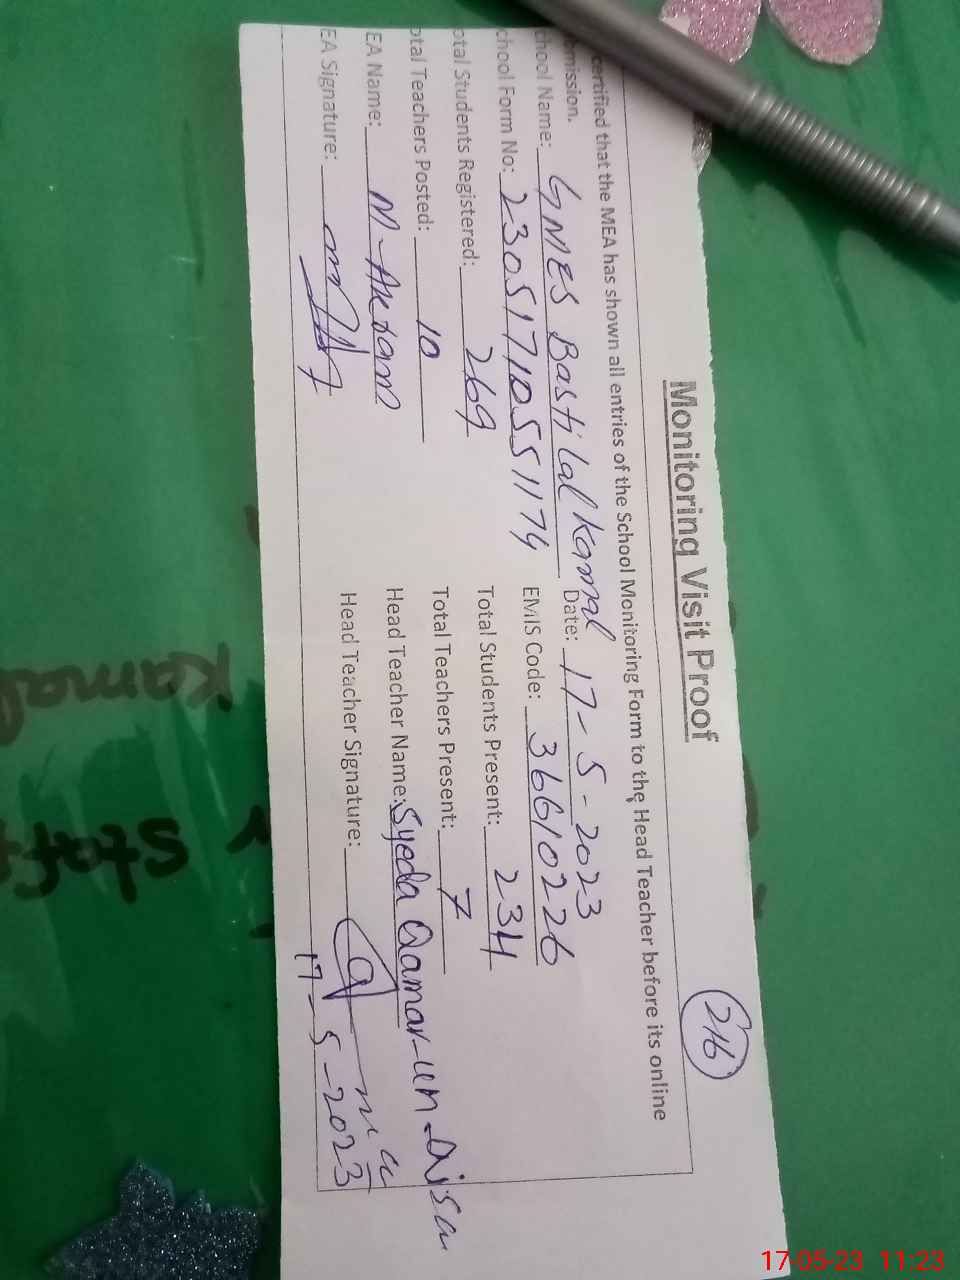 Monitoring Visit Proof
216
certified that the MEA has shown all entries of the School Monitoring Form to the Head Teacher before its online
mission.
chool Name: GMES Basti Lal Kamal Date: 17-5-2023
chool Form No: 23051710551174 EMIS Code: 36610226
otal Students Registered: 269 Total Students Present: 234
otal Teachers Posted: 10 Total Teachers Present: 7
EA Name: M-Akram Head Teacher Name: Syeda Qamar-un-Nisa
EA Signature: Head Teacher Signature:
17-5-2023
Kamal
Staff
17-05-23 11:23